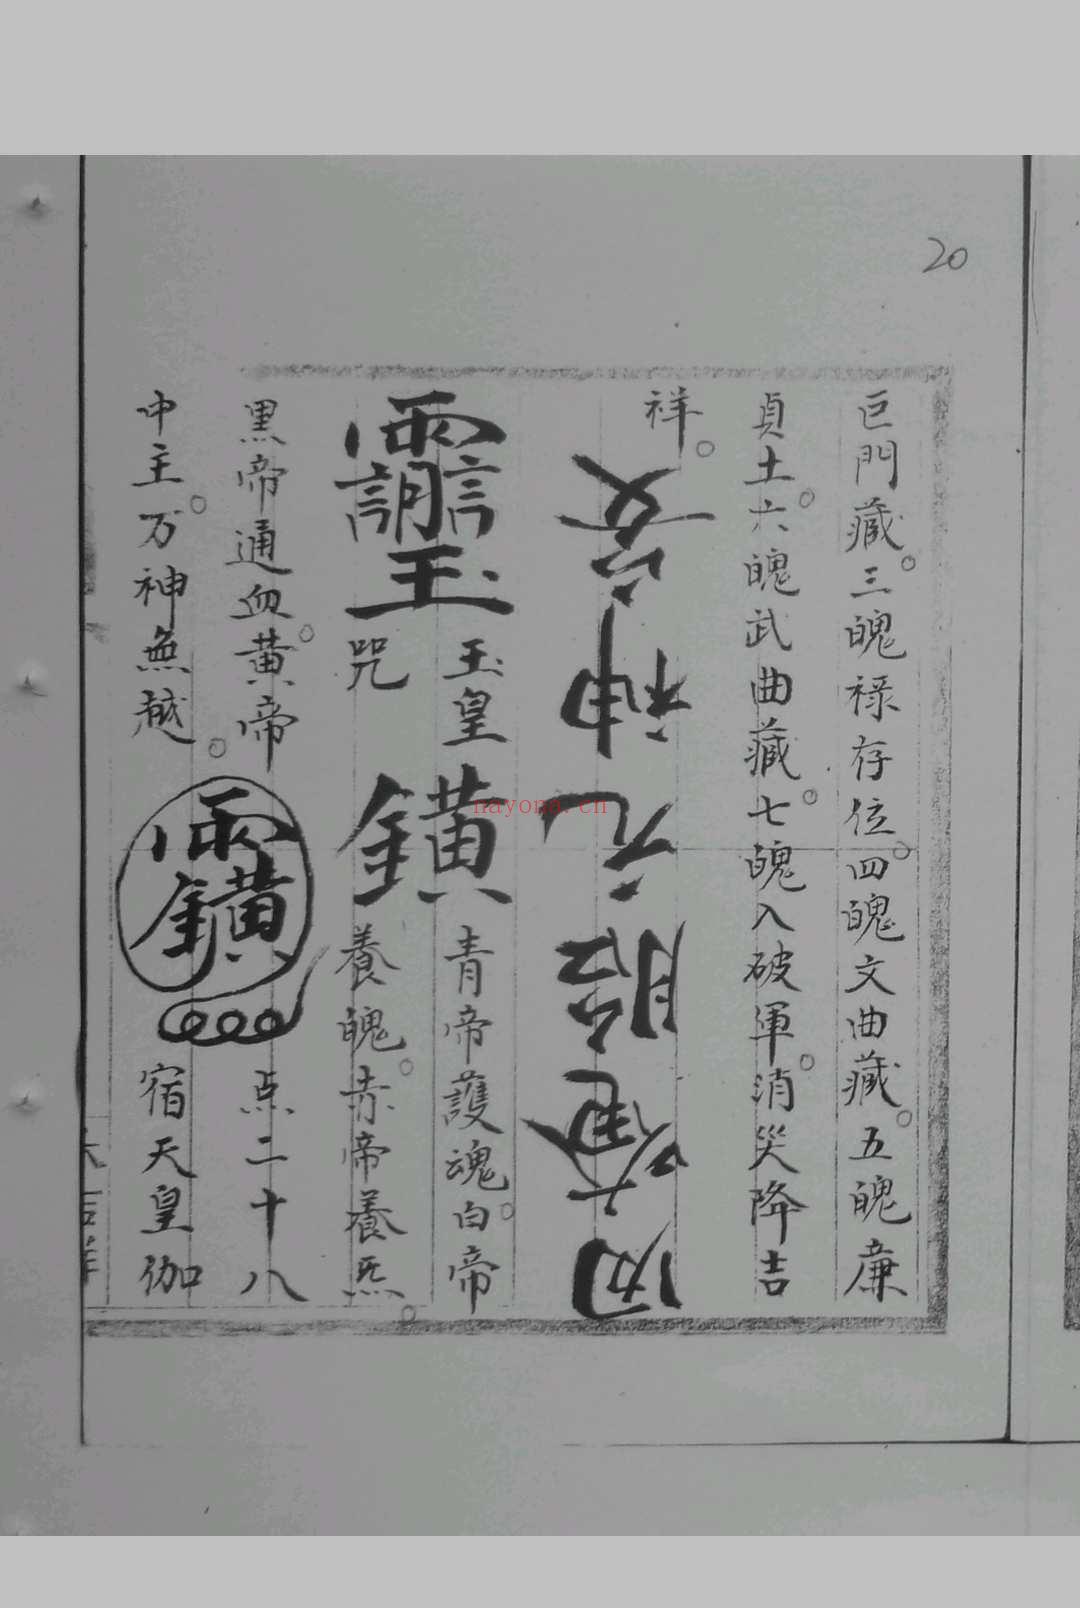 20
巨門藏。三魄禄存位。四魄文曲藏。五魄廉
貞土。六魄武曲藏。七魄入破軍。消災降吉
祥。
安神元胎
内
玉皇
咒
鐄
青帝護魂。白帝
養魄。赤帝養炁。
黑帝通血。黄帝
点二十八
中主。万神無越。
宿天皇伽
nayona.cn